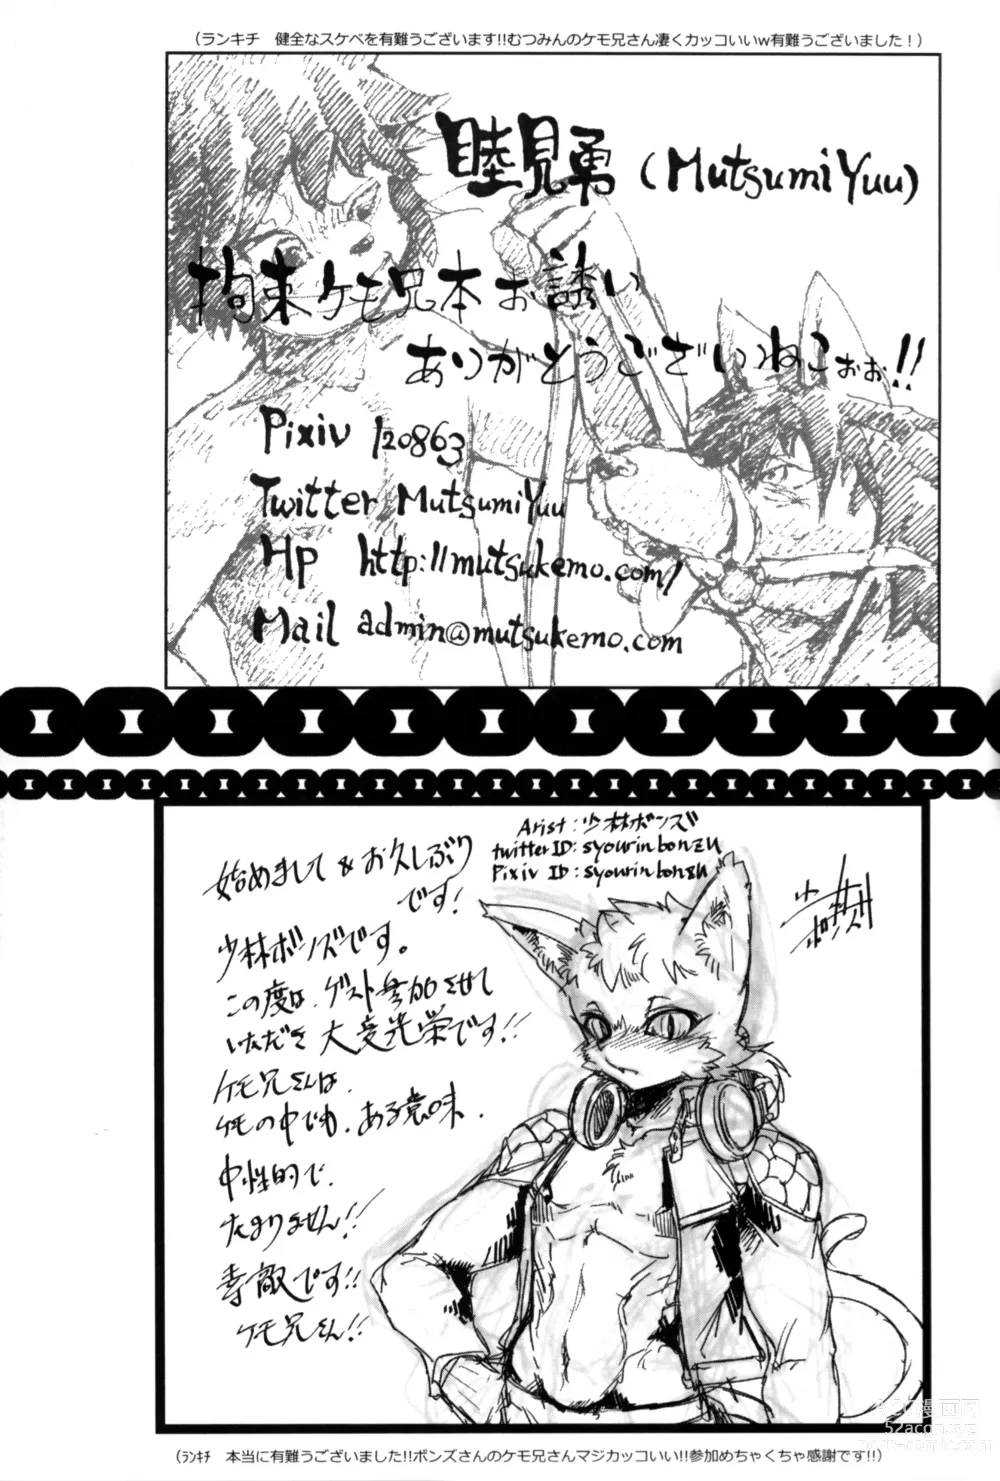 （ランキチ　健全なスケベを有難うございます!!むつみんのケモ兄さん凄くカッコいいw有難うございました！）
睦見勇 (MutsumiYuu)
拘束ケモ兄本お誘い
ありがとうございねこぉぉ!!
Pixiv 120863
Twitter MutsumiYuu
Hp http://mutsukemo.com/
Mail admin@mutsukemo.com
Arist:少林ボンズ
twitterID:syourinbonzu
Pixiv ID:syourinbonzu
始めまして&お久しぶり
です!
少林ボンズです。
この度は、ゲスト参加させて
いただき大変光栄です!!
ケモ兄さんは、
ケモの中でも、ある意味、
中性的で、
たまりません!!
素敵です!!
ケモ兄さん!!
少林ボンズ
52acg.com
（ﾗﾝｷﾁ　本当に有難うございました!!ボンズさんのケモ兄さんマジカッコいい!!参加めちゃくちゃ感謝です!!）